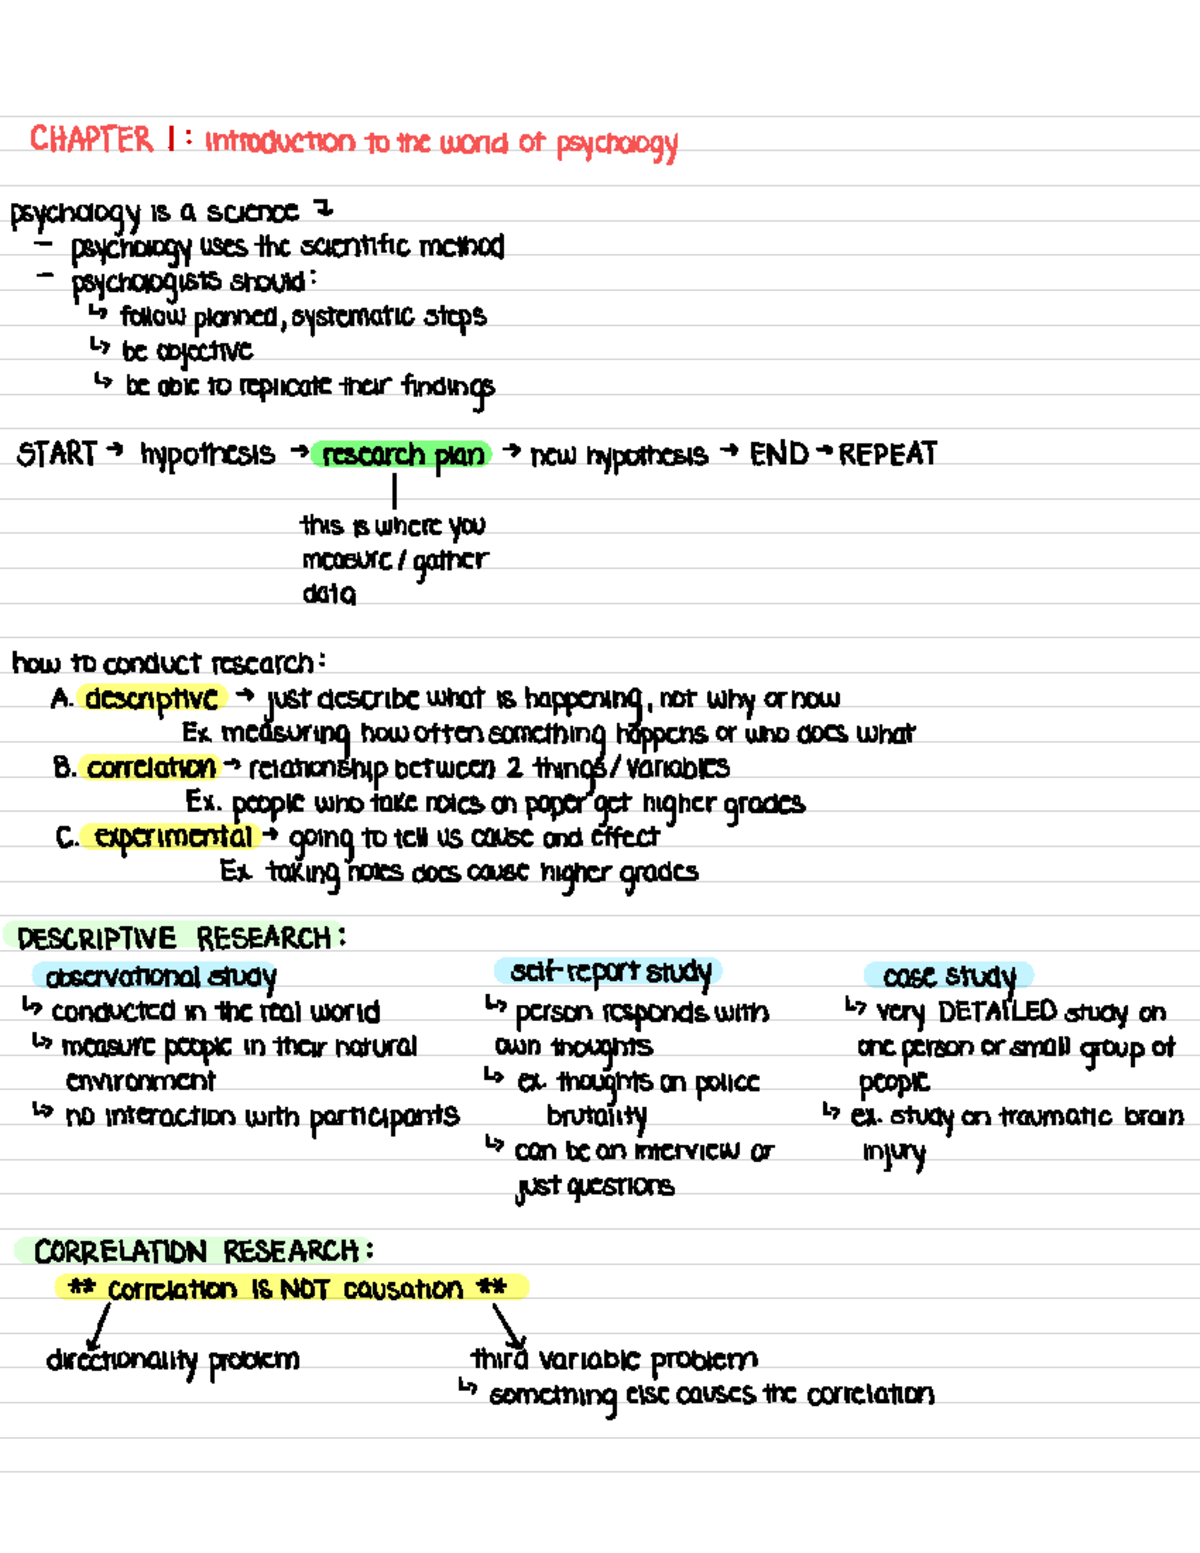 CHAPTER 1: Introduction to the world of psychology
psychology is a science ↴
– psychology uses the scientific method
– psychologists should:
↳ follow planned, systematic steps
↳ be objective
↳ be able to replicate their findings
START → hypothesis → research plan → new hypothesis → END → REPEAT
this is where you
measure / gather
data
how to conduct research:
A. descriptive → just describe what is happening, not why or how
Ex. measuring how often something happens or who does what
B. correlation → relationship between 2 things/variables
Ex. people who take notes on paper get higher grades
C. experimental → going to tell us cause and effect
Ex. taking notes does cause higher grades
DESCRIPTIVE RESEARCH:
observational study
↳ conducted in the real world
↳ measure people in their natural
environment
↳ no interaction with participants
self-report study
↳ person responds with
own thoughts
↳ ex. thoughts on police
brutality
↳ can be an interview or
just questions
case study
↳ very DETAILED study on
one person or small group of
people
↳ ex. study on traumatic brain
injury
CORRELATION RESEARCH:
** Correlation IS NOT causation **
directionality problem
third variable problem
↳ something else causes the correlation